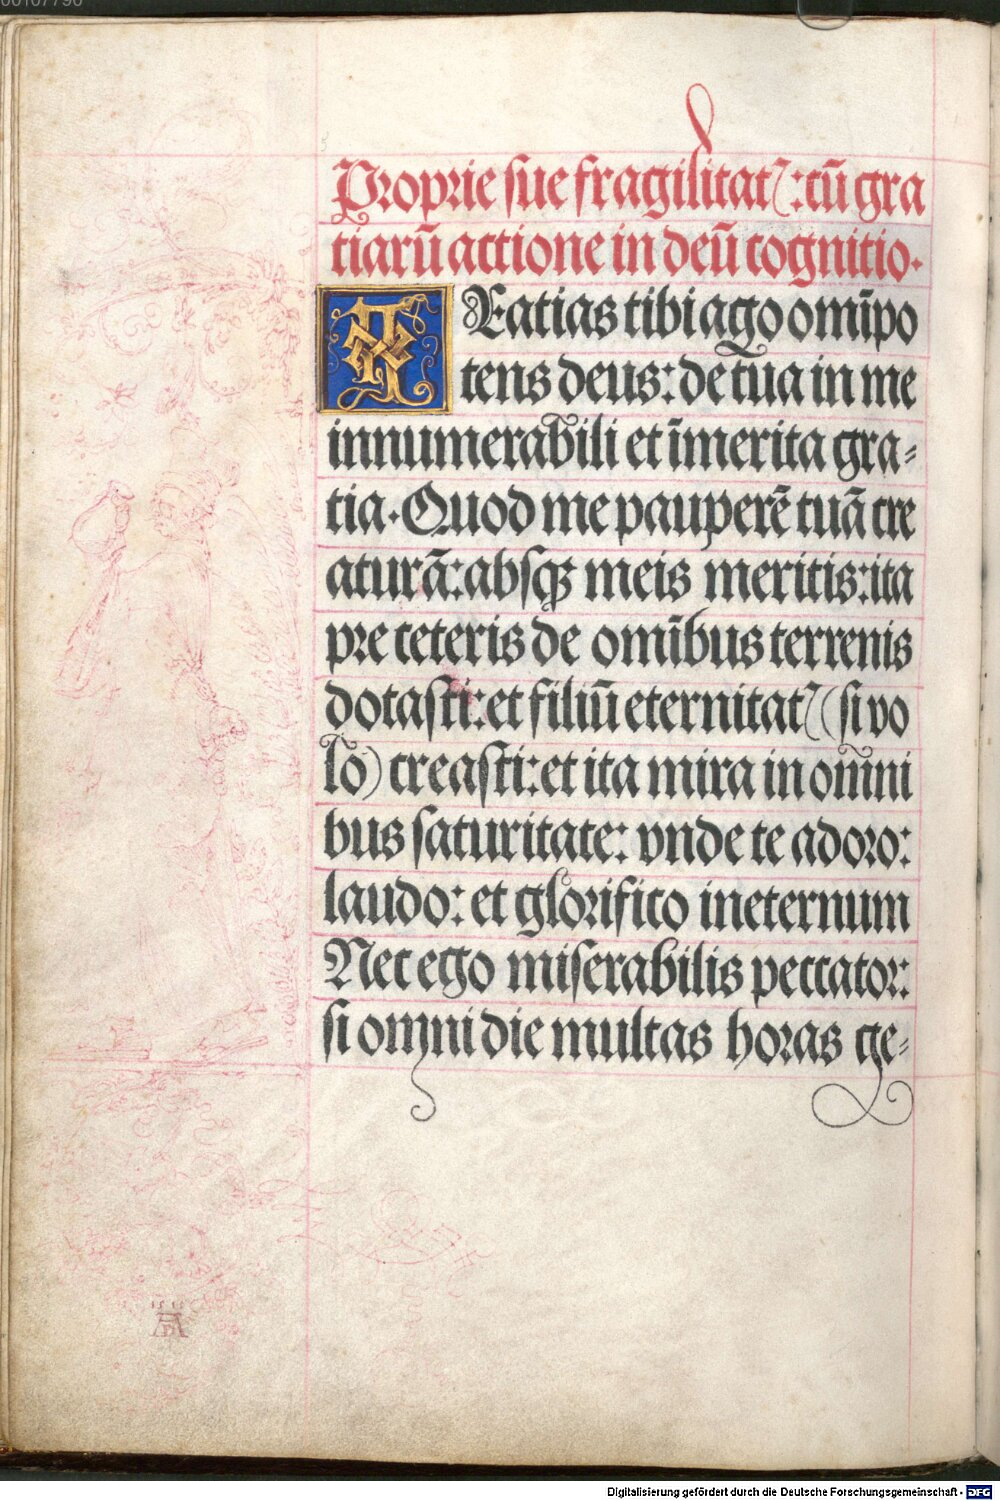 Proprie sue fragilitatꝭ: cū gra
tiarū actione in deū cognitio.
GRatias tibi ago omīpo
tens deus: de tua in me
innumerabili et īmerita gra⸗
tia. Quod me pauperē tuā cre
aturā: absqꝫ meis meritis: ita
pre ceteris de omībus terrenis
dotasti: et filiū eternitatꝭ (si vo
lo) creasti: et ita mira in omni
bus saturitate: vnde te adoro:
laudo: et glorifico ineternum
Nec ego miserabilis peccator:
si omni die multas horas ge⸗
AD
Digitalisierung gefördert durch die Deutsche Forschungsgemeinschaft - DFG